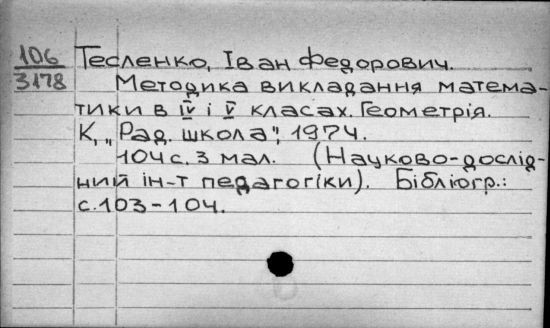 106
3178
Тесленко, Іван Федорович.
Методика викладання матема-
тики в IV і V класах. Геометрія.
К, „Рад. школа", 1974.
104 с. з мал. (Науково-дослід-
ний ін-т педагогіки). Бібліогр.:
с. 103-104.